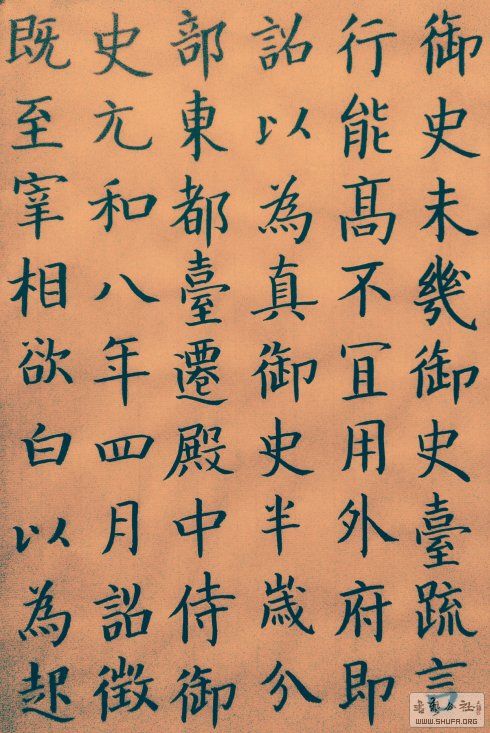 御史未幾御史臺疏言
行能高不宜用外府即
詔以為真御史半歲分
部東都臺遷殿中侍御
史元和八年四月詔徵
既至宰相欲白以為起
WWW.SHUFA.ORG